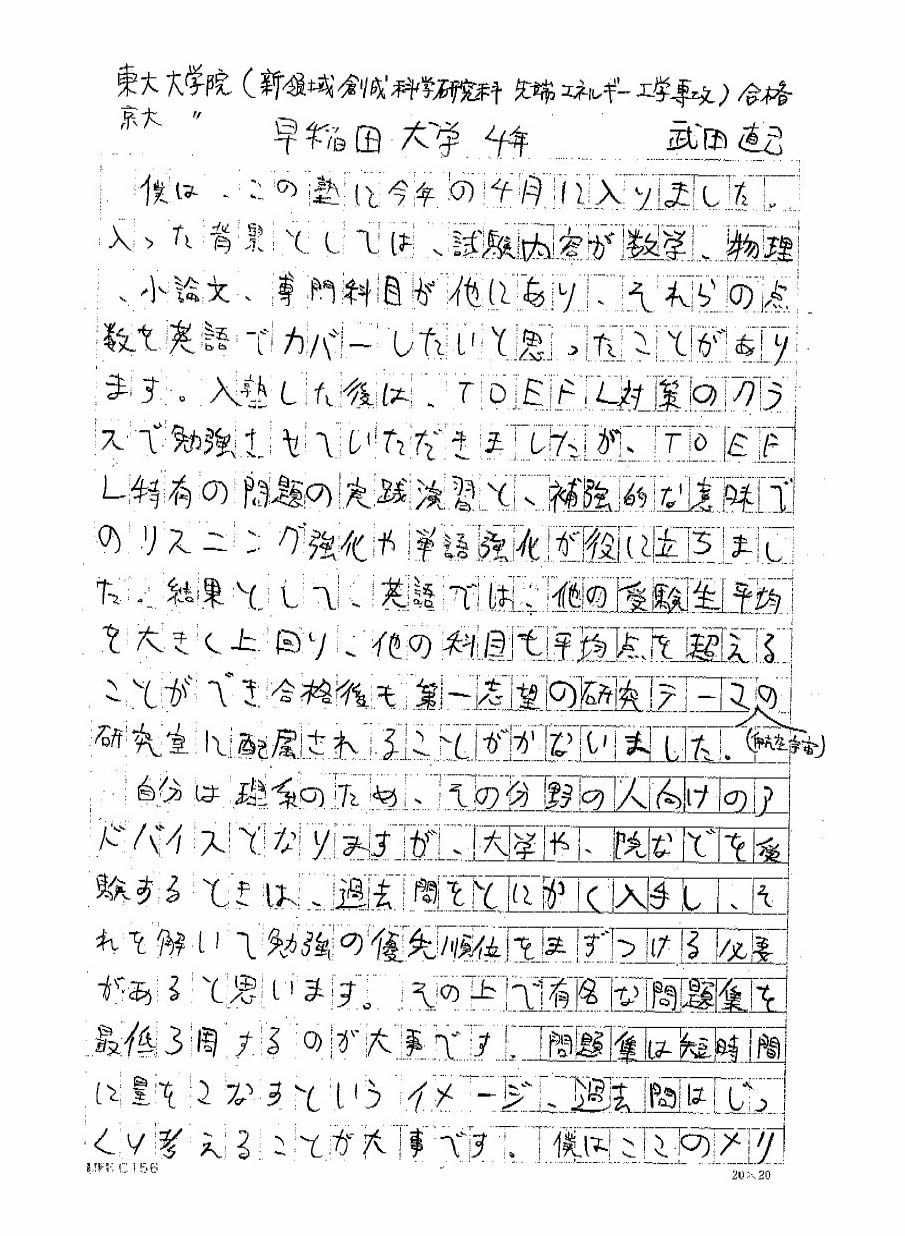 東大大学院(新領域創成科学研究科 先端エネルギー工学専攻)合格
京大 〃
早稲田大学 4年 武田直己
僕は、この塾に今年の4月に入りました。
入った背景としては、試験内容が数学、物理
、小論文、専門科目が他にあり、それらの点
数を英語でカバーしたいと思ったことがあり
ます。入塾した後は、TOEFL対策のクラ
スで勉強させていただきましたが、TOEF
L特有の問題の実践演習と、補強的な意味で
のリスニング強化や単語強化が役に立ちまし
た。結果として、英語では、他の受験生平均
を大きく上回り、他の科目も平均点を超える
ことができ合格後も第一志望の研究テーマの
(航空宇宙)
研究室に配属されることがかないました。
自分は理系のため、その分野の人向けのア
ドバイスとなりますが、大学や、院などを受
験するときは、過去問をとにかく入手し、そ
れを解いて勉強の優先順位をまずつける必要
があると思います。その上で有名な問題集を
最低3周するのが大事です。問題集は短時間
に量をこなすというイメージ、過去問はじっ
くり考えることが大事です。僕はここのメリ
C156
20×20